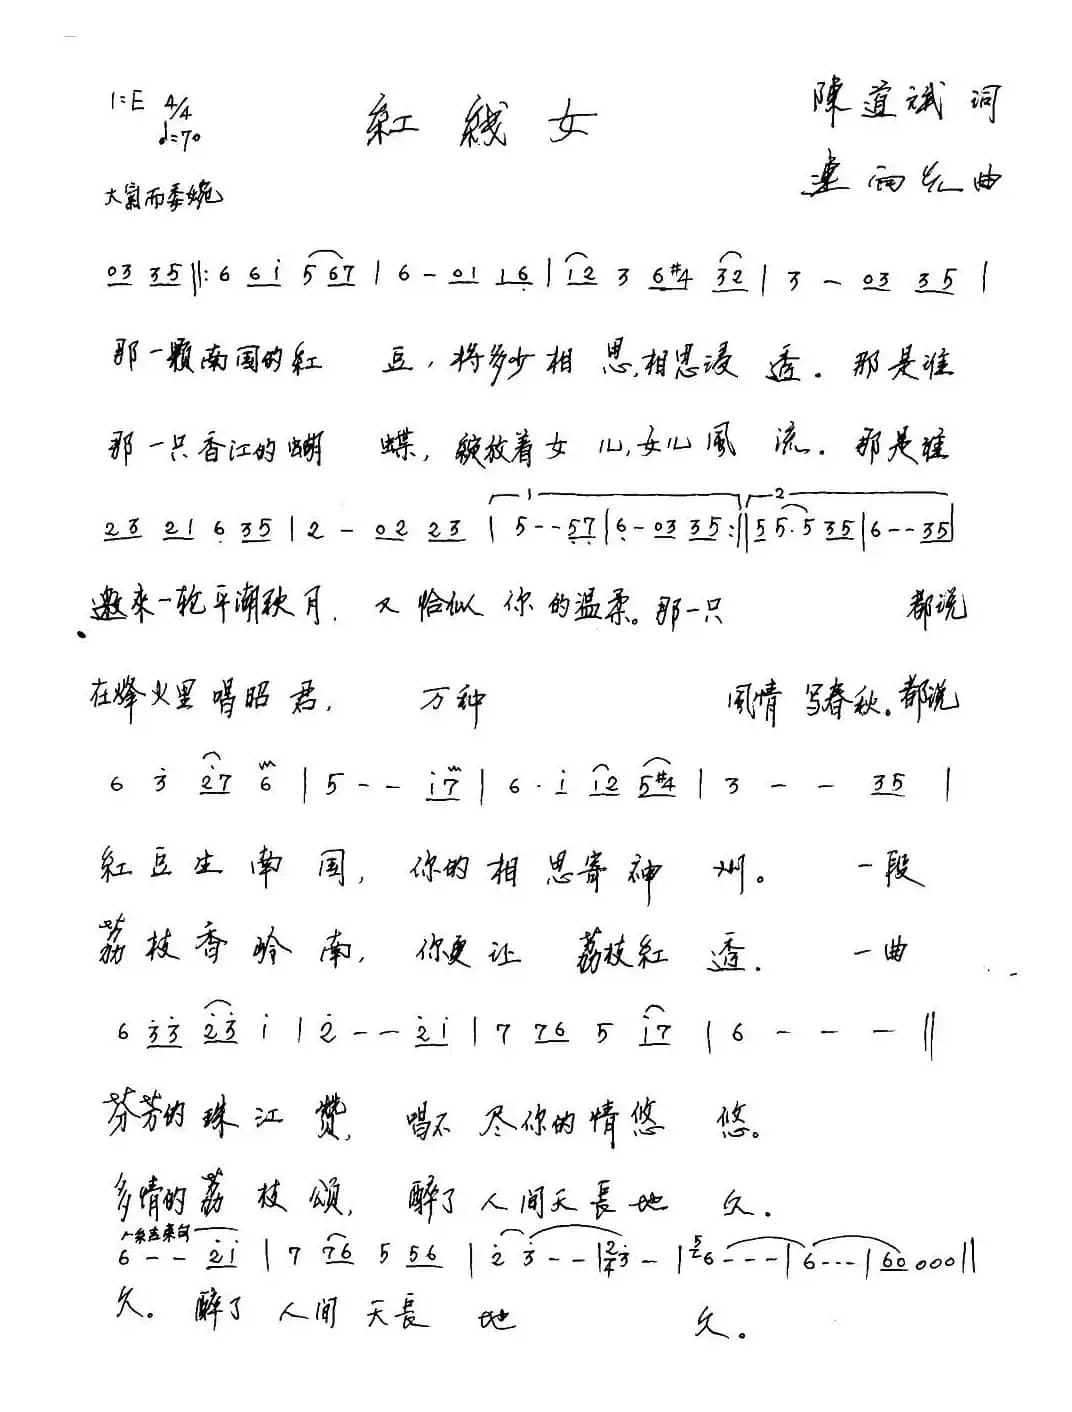 1=E 4/4
♩=70
紅线女
陳道斌 词
雨 曲
大氣而委婉
03 35 ‖: 6 6i 5 67 | 6 - 01 16 | i2 3 6#4 32 | 3 - 03 35 |
那一颗南国的紅 豆，将多少相 思,相思浸 透. 那是谁
那一只香江的蝴 蝶, 绽放着女 儿,女儿風 流. 那是谁
23 21 6 35 | 2 - 02 23 | 1 5--57 | 6-03 35 :‖ 2 55·5 35 | 6--35 |
邀来一轮平潮秋月, 又恰似你的温柔。那一只 都说
在烽火里唱昭君, 万种 風情写春秋。都说
6 3 27 6 | 5 - - i7 | 6 · i i2 5#4 | 3 - - 35 |
紅豆生南国, 你的相思寄神州。 一段
荔枝香岭南, 你更让 荔枝紅透. 一曲
6 33 23 i | 2 - - 2i | 7 76 5 i7 | 6 - - - ‖
芬芳的珠江赞, 唱不尽你的情悠 悠。
多情的荔枝颂, 醉了人间天長地 久.
结束句
6 - - 2i | 7 76 5 56 | 2 3 - - | 2/4 3 - | 6 - - - | 6 - - - | 60 000 ‖
久。醉了 人间 天長 地 久。